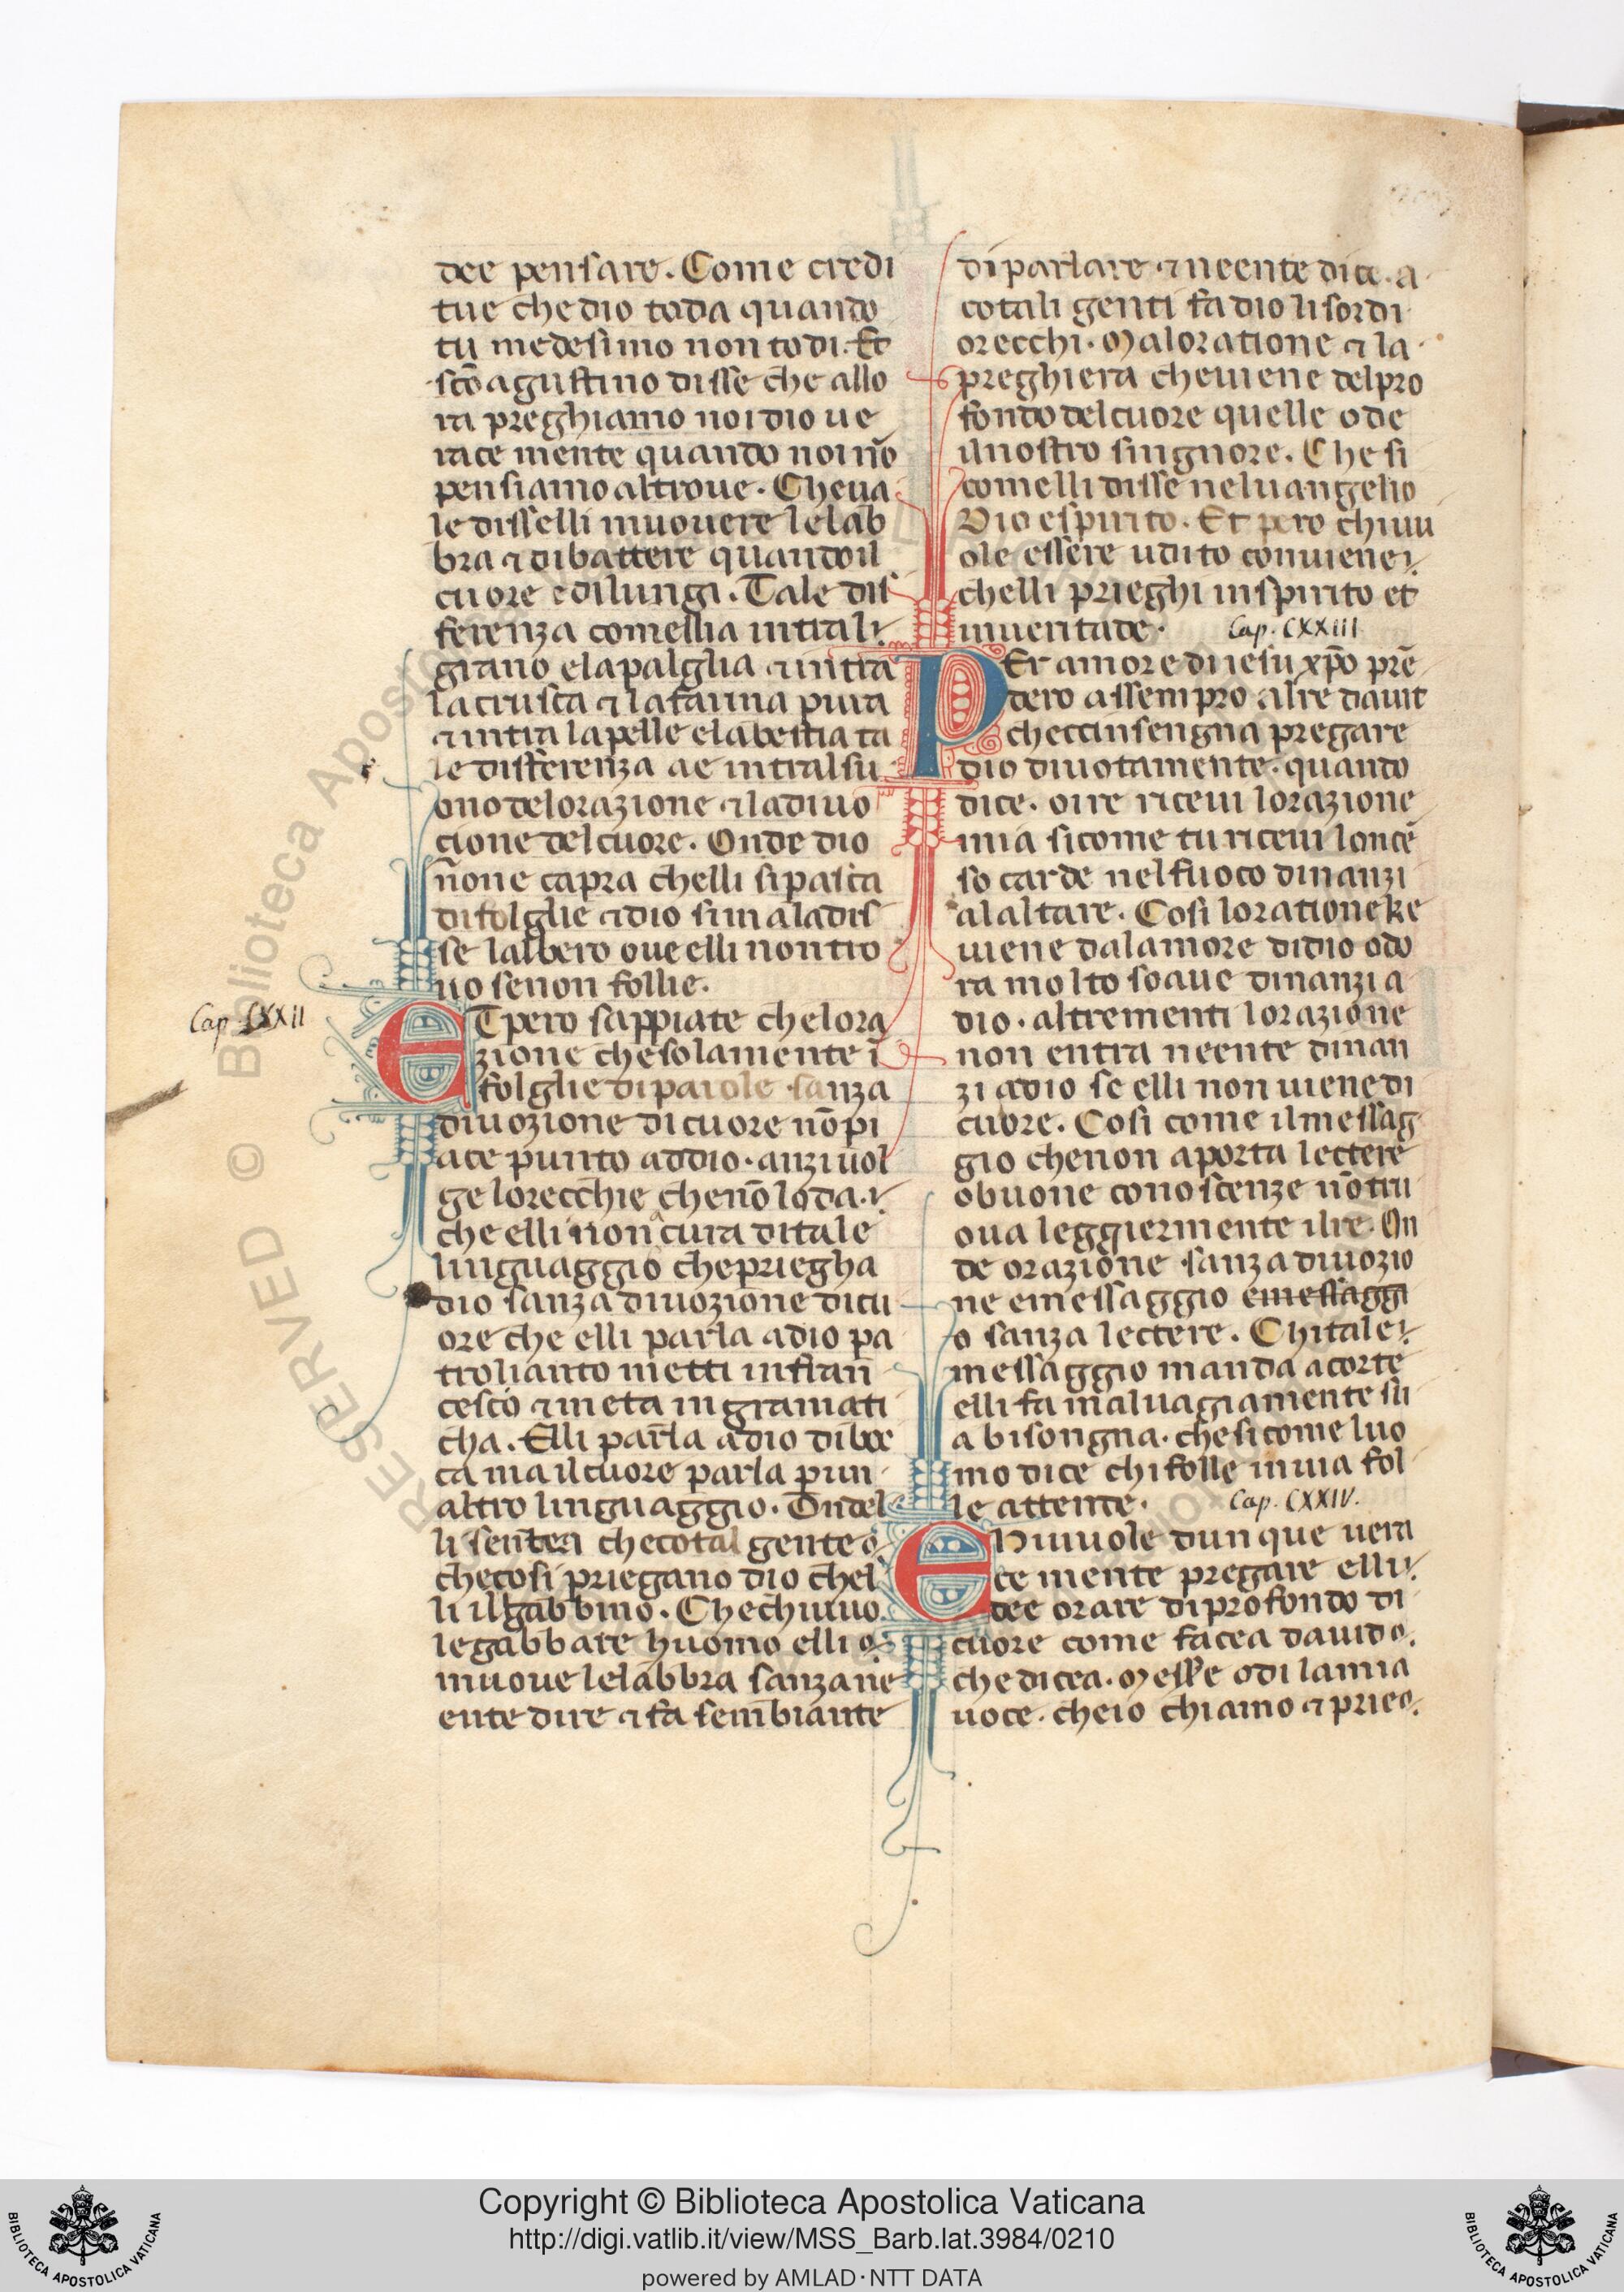 dee pensare. Come credi
tue che dio toda quando
tu medesimo non todi. Et
sc̄o agustino disse che allo
ra preghiamo noi dio ue
race mente quando noi nō
pensiamo altroue. Cheua
le disselli muouere lelab
bra ⁊ dibattere quandoil
cuore edilungi. Tale dif
ferenza comellia intrali
grano elapalglia ⁊ intra
lacrusca ⁊ lafarina pura
⁊ intra lapelle elabestia ta
le differenza ae intralsu
ono delorazione ⁊ ladiuo
cione delcuore. Onde dio
n̄one capra chelli sipasca
difolglie ⁊ dio simaladis
se lalbero oue elli nontro
uo senon follie.
Cap. CXXII
ETpero sappiate chelora
zione chesolamente ī
folglie diparole sanza
diuozione dicuore nō pi
ace punto addio. anziuol
ge lorecchie chenō loda.
che elli non cura ditale
linguaggio cheipriegha
dio sanza diuozione dicu
ore che elli parla adio pa
trolianto metti infran
cesco ⁊ meta ingramati
cha. Elli parla adio diboc
ca ma ilcuore parla p un
altro linguaggio. Ondel
li sentea checotal gente
checosi priegano dio chel
li ilgabbino. Chechiuuo
legabbare huomo elli
muoue lelabbra sanza ne
ente dire ⁊ fa sembiante
diparlare ⁊ neente dice. a
cotali genti fa dio lisordi
orecchi. Maloratione ⁊ la
preghiera cheuiene delpro
fondo delcuore quelle ode
ilnostro singnore. Che si
comelli disse neluangelio
Dio espirito. Et pero chiuu
ole essere udito conuiene
chelli prieghi inspirito et
inueritade.
Cap. CXXIII
PEr amore diiesu xp̄o prē
dero assempro alre dauit
checcinsengna pregare
dio diuotamente. quando
dice. oire riceui lorazione
mia sicome tu riceui loncē
so carde nelfuoco dinanzi
alaltare. Cosi loratione ke
uiene dalamore didio odo
ra molto soaue dinanzi a
dio. altrementi lorazione
non entra neente dinan
zi adio se elli non uiene di
cuore. Cosi come ilmessag
gio chenon aporta lettere
obuone conoscenze nō tru
oua leggiermente ilre. On
de orazione sanza diuozio
ne emessaggio emessaggi
o sanza lettere. Chitale
messaggio manda acorte
elli fa maluagiamente su
a bisongna. chesicome luo
mo dice chifolle inuia fol
le attente.
Cap. CXXIV.
Chiuuole dunque uera
ce mente pregare elli
dee orare diprofondo di
cuore come facea dauid
chedicea. Messe odi lamia
uoce. cheio chiamo ⁊ prieo
Copyright © Biblioteca Apostolica Vaticana
http://digi.vatlib.it/view/MSS_Barb.lat.3984/0210
powered by AMLAD·NTT DATA
BIBLIOTECA APOSTOLICA VATICANA
BIBLIOTECA APOSTOLICA VATICANA